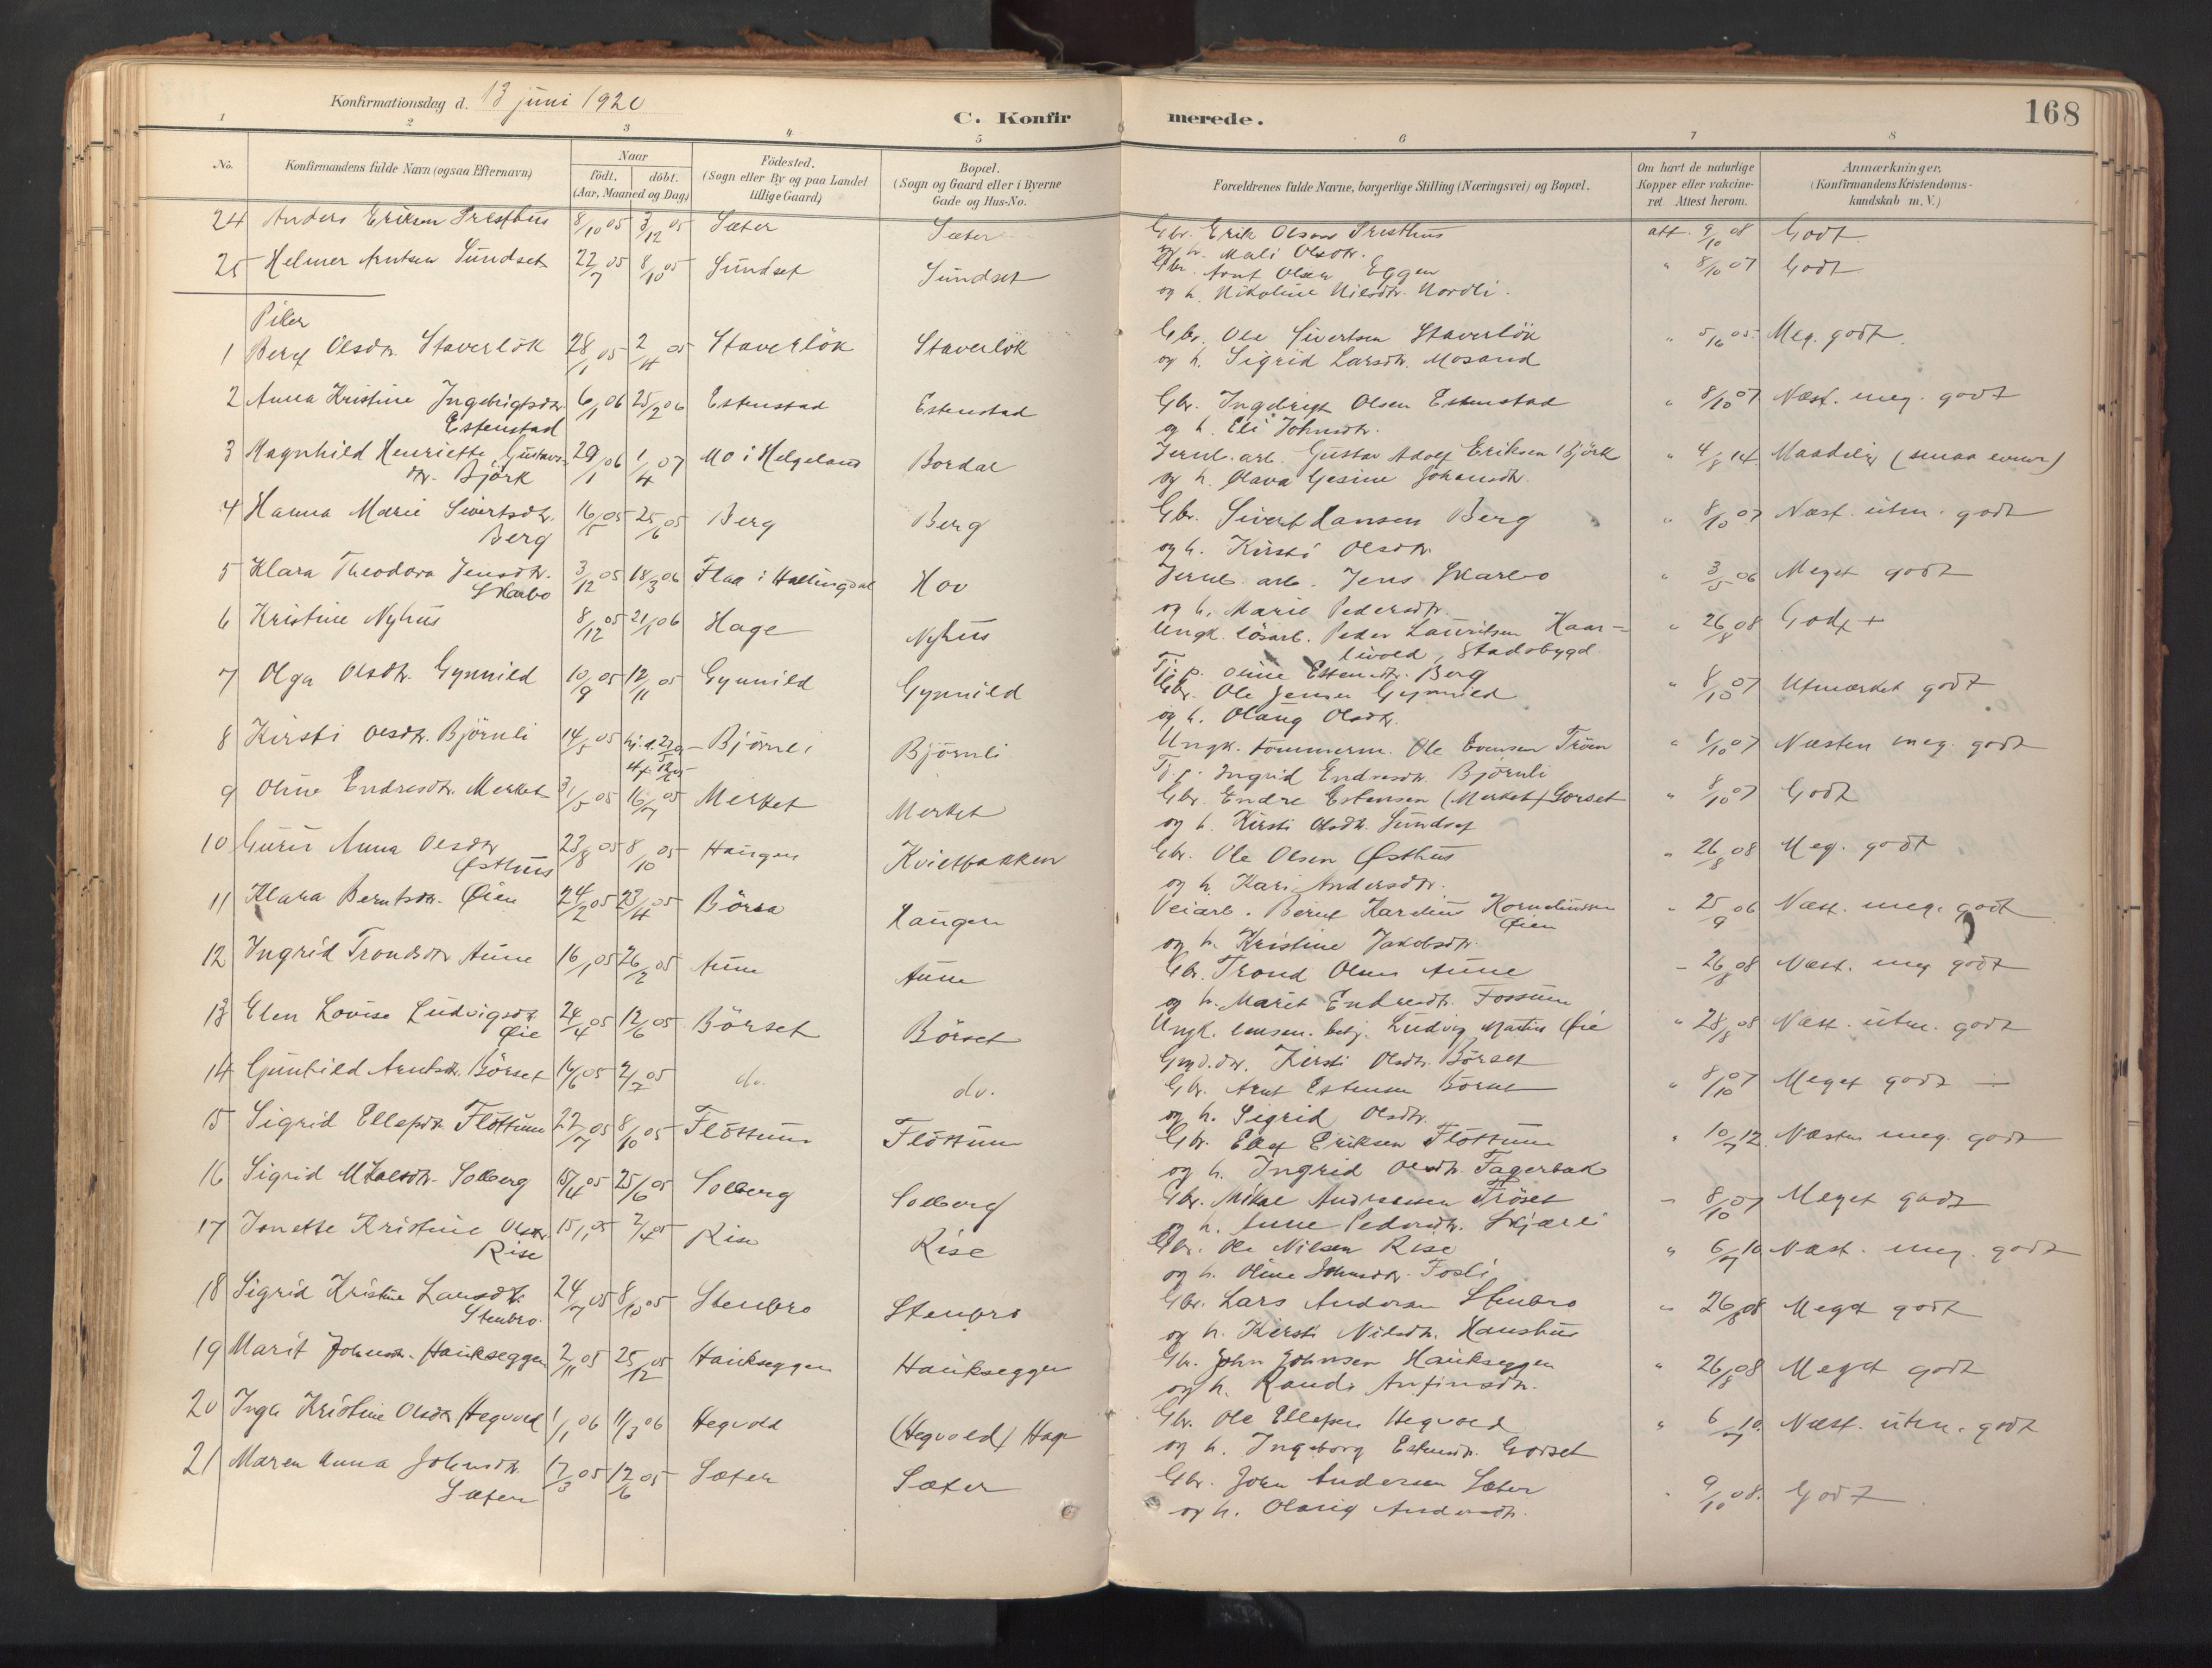 Konfirmationsdag d. 13 juni 1920
C. Konfirmerede.
168
1 2 3 4 5 6 7 8
No.
Konfirmandens fulde Navn (ogsaa Efternavn)
Naar
födt. döbt.
(Aar, Maaned og Dag)
Födested.
(Sogn eller By og paa Landet
tillige Gaard)
Bopæl.
(Sogn og Gaard eller i Byerne
Gade og Hus-No.
Forældrenes fulde Navne, borgerlige Stilling (Næringsvei) og Bopæl.
Om havt de naturlige
Kopper eller vakcine-
ret Attest herom.
Anmærkninger.
(Konfirmandens Kristendoms-
kundskab m. V.)
24 Anders Eriksen Presthus 8/10 05 3/12 05 Sæter Sæter Gbr. Erik Olsen Presthus att. 9/10 08 Godt
og h. Mali Olsdtr.
25 Helmer Arntsen Sundset 22/7 05 8/10 05 Sundset Sundset Gbr. Arnt Olsen Eggen " 8/10 07 Godt
og h. Nikoline Nilsdtr. Nordli.
Piker
1 Berit Olsdtr. Staverløk 28/1 05 2/4 05 Staverløk Staverløk Gbr. Ole Sivertsen Staverløk " 5/6 05. Meg. godt.
og h. Sigrid Larsdtr. Mosand
2 Anna Kristine Ingebrigtsdtr. 6/1 06 25/2 06 Estenstad Estenstad Gbr. Ingebrigt Olsen Estenstad " 8/10 07 Næst. meg. godt
Estenstad og h. Eli Johnsdtr.
3 Magnhild Henriette Gustavs- 29/1 06 1/4 07 Mo i Helgeland Bordal Jernb. arb. Gustav Adolf Eriksen Björk " 4/8 14 Maadelig (smaa evner)
dtr. Björk og h. Olava Gesine Johansdtr.
4 Hanna Marie Sivertsdtr. 16/5 05 25/6 05 Berg Berg Gbr. Sivert Hansen Berg " 8/10 07 Næst. utm. godt
Berg og h. Kirsti Olsdtr.
5 Klara Theodora Jensdtr. 3/12 05 18/3 06 Flaa i Hallingdal Hov Jernb. arb. Jens Skarbo " 3/5 06 Meget godt
Skarbo og h. Marie Pedersdtr.
6 Kristine Nyhus 8/12 05 21/1 06 Hage Nyhus Ungk. lösarb. Peder Lauritsen Haar- " 26/8 08 Godt +
livold, Stadsbygd
Tj. p. Oline Estensdtr. Berg
7 Olga Olsdtr. Gynnild 10/9 05 12/11 05 Gynnild Gynnild Gbr. Ole Jensen Gynnild " 8/10 07 Utmærket godt
og h. Olaug Olsdtr.
8 Kirsti Olsdtr. Björnli 14/5 05 Björnli Björnli Ungk. tömmerm. Ole Evensen Tröen " 8/10 07 Næsten meg. godt
Tj. p. Ingrid Endresdtr. Björnli
9 Oline Endresdtr. Merket 31/5 05 16/7 05 Merket Merket Gbr. Endre Estensen (Merket) Gorset " 8/10 07 Godt
og h. Kirsti Olsdtr. Sundset
10 Guru Anna Olsdtr 23/8 05 8/10 05 Haugen Kvilbakken Gbr. Ole Olsen Østhus " 26/8 08 Meg. godt
Østhus og h. Kari Andersdtr.
11 Klara Berntsdtr. Øien 24/2 05 23/4 05 Börsa Haugen Veiarb. Bernt Kornelinsen " 25/9 06 Næst. meg. godt
Øien
og h. Kristine Jakobsdtr.
12 Ingrid Trondsdtr Aune 16/1 05 26/2 05 Aune Aune Gbr. Trond Olsen Aune " 26/8 08 Næst. meg godt
og h. Marit Endresdtr. Fossum
13 Elen Lovise Ludvigsdtr. 24/4 05 12/6 05 Börset Börset Ungk. Ludvig Martin Øie " 28/8 08 Næst. utm. godt
Øie Gmd. dtr. Kirsti Olsdtr. Börset
14 Gunhild Arntsdtr. Börset 16/6 05 2/7 05 do. do. Gbr. Arnt Estensen Börset " 8/10 07 Meget godt —
og h. Sigrid Olsdtr.
15 Sigrid Ellefsdtr. Flöttum 22/7 05 8/10 05 Flöttum Flöttum Gbr. Ellef Eriksen Flöttum " 10/7 12. Næsten meg. godt
og h. Ingrid Olsdtr. Fagerbak
16 Sigrid Mikalsdtr. Solberg 15/4 05 25/6 05 Solberg Solberg Gbr. Mikal Andreassen Fröset " 8/10 07 Meget godt
og h. Anne Pedersdtr. Skjærli
17 Jonette Kristine Olsdtr. 15/1 05 2/4 05 Rise Rise Gbr. Ole Nilsen Rise " 6/7 10 Næst. meg. godt
Rise og h. Oline Johnsdtr. Fosli
18 Sigrid Kristine Larsdtr. 24/7 05 8/10 05 Stenbro Stenbro Gbr. Lars Andersen Stenbro " 26/8 08 Meget godt
Stenbro. og h. Kirsti Nilsdtr. Haushus
19 Marit Johnsdtr. Haukseggen 2/11 05 25/12 05 Haukseggen Haukseggen Gbr. John Johnsen Haukseggen " 26/8 08 Meget godt
og h. Randi Anfinsdtr.
20 Inga Kristine Olsdtr Hegvold 1/1 06 11/3 06 Hegvold (Hegvold) Hage Gbr. Ole Ellefsen Hegvold " 6/7 10. Næst. utm. godt
og h. Ingeborg Estensdtr. Gorset
21 Maren Anna Johnsdtr. 17/3 05 12/6 05 Sæter Sæter Gbr. John Andersen Sæter " 9/10 08. Godt.
Sæter og h. Olaug Andersdtr.